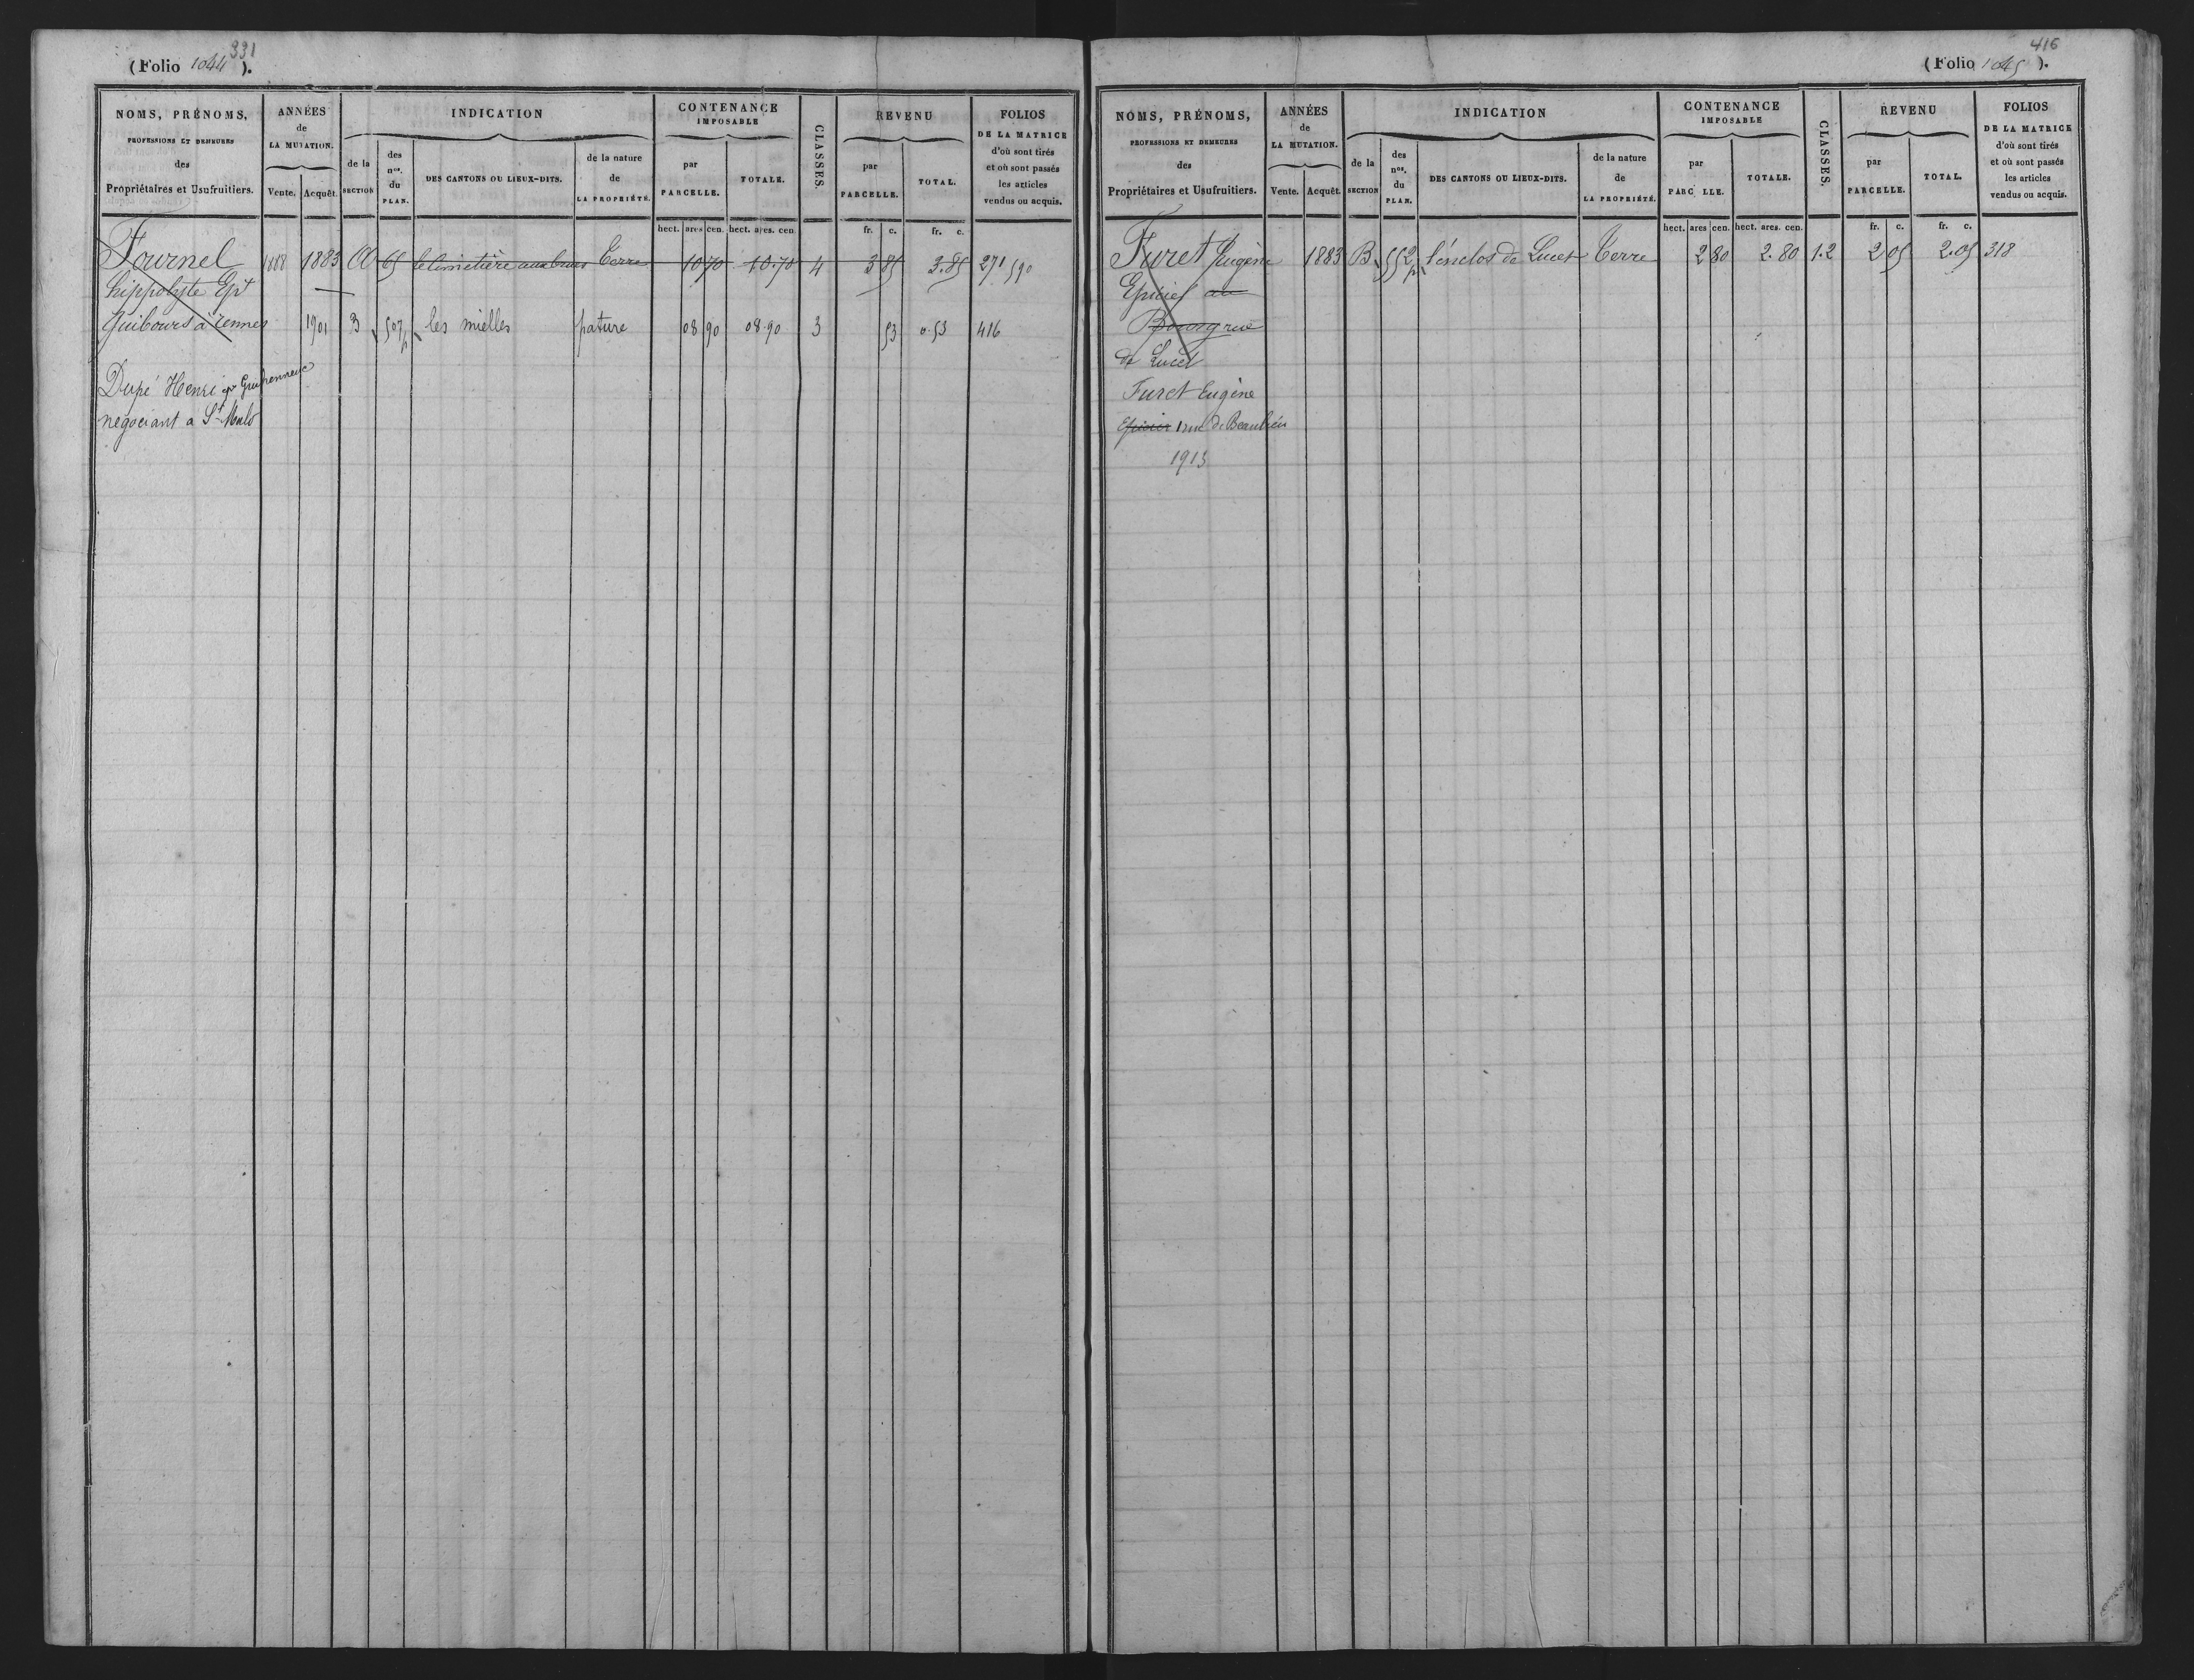 331
(Folio 1044).
NOMS, PRÉNOMS,
PROFESSIONS ET DEMEURES
des
Propriétaires et Usufruitiers.
ANNÉES
de
LA MUTATION.
Vente. Acquêt.
INDICATION
de la
SECTION
des
nos.
du
PLAN.
DES CANTONS OU LIEUX-DITS.
de la nature
de
LA PROPRIÉTÉ.
CONTENANCE
IMPOSABLE
par
PARCELLE.
TOTALE.
CLASSES.
REVENU
par
PARCELLE.
TOTAL.
FOLIOS
DE LA MATRICE
d'où sont tirés
et où sont passés
les articles
vendus ou acquis.
hect. ares cen. hect. ares. cen. fr. c. fr. c.
Fournel 1883 A 65 le Cimetière aux Terre 10 70 10.70 4 3 85 3.85 271 590
hippolyte Ept
Guibours à rennes 1901 B 507p les mielles pature 08 90 08.90 3 53 0.53 416
Dupé Henri
négociant a St Malo
416
(Folio 1045).
NOMS, PRÉNOMS,
PROFESSIONS ET DEMEURES
des
Propriétaires et Usufruitiers.
ANNÉES
de
LA MUTATION.
Vente. Acquêt.
INDICATION
de la
SECTION
des
nos.
du
PLAN.
DES CANTONS OU LIEUX-DITS.
de la nature
de
LA PROPRIÉTÉ.
CONTENANCE
IMPOSABLE
par
PARC LLE.
TOTALE.
CLASSES.
REVENU
par
PARCELLE.
TOTAL.
FOLIOS
DE LA MATRICE
d'où sont tirés
et où sont passés
les articles
vendus ou acquis.
hect. ares cen. hect. ares. cen. fr. c. fr. c.
Furet Eugène 1883 B 552p l'énclos de Lucet Terre 2 80 2.80 1.2 2 05 2.05 318
Epicier au
Bourg rue
de Lucet
Furet Eugène
Epicier rue de Beaulieu
1913